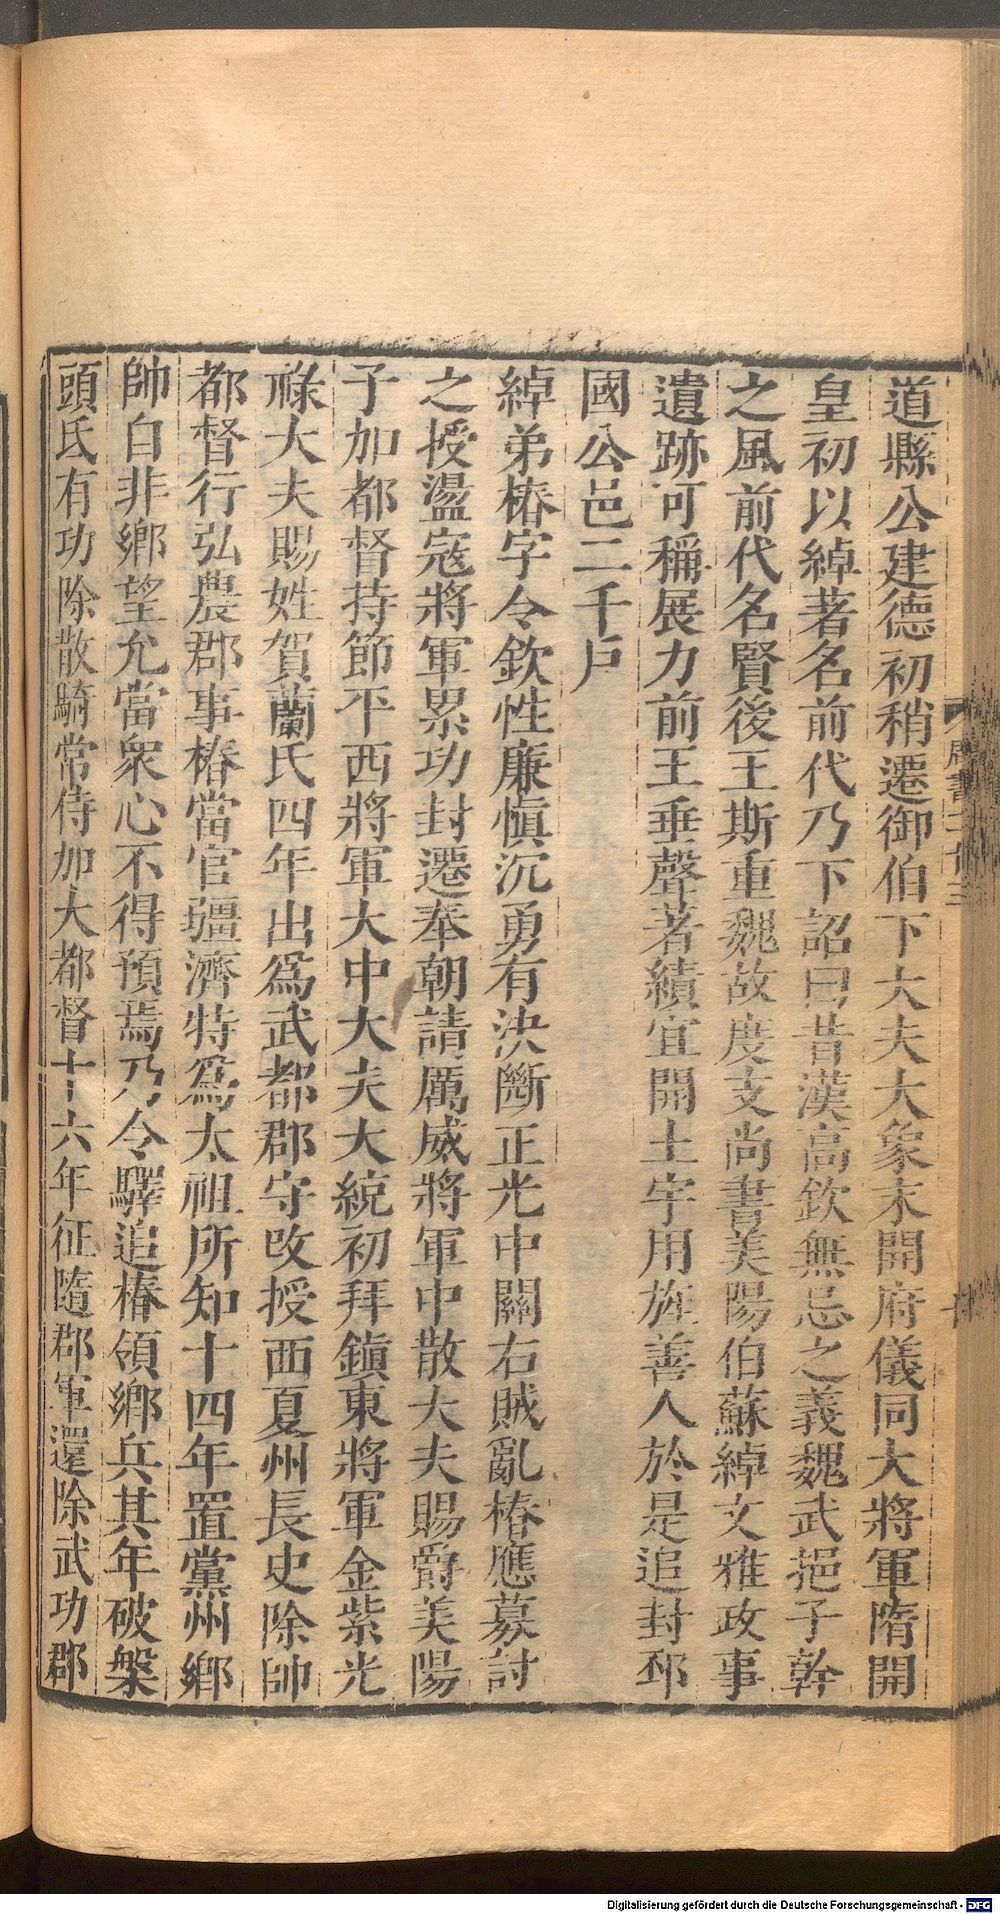 道縣公建德初稍遷御伯下大夫大象末開府儀同大將軍隋開
皇初以綽著名前代乃下詔曰昔漢高欽無忌之義魏武挹子幹
之風前代名賢後王斯重魏故度支尚書美陽伯蘇綽文雅政事
遺跡可稱展力前王垂聲著績宜開土宇用旌善人於是追封邳
國公邑二千戶
綽弟椿字令欽性廉慎沉勇有決斷正光中關右賊亂椿應募討
之授盪寇將軍累功封遷奉朝請厲威將軍中散大夫賜爵美陽
子加都督持節平西將軍大中大夫大統初拜鎮東將軍金紫光
祿大夫賜姓賀蘭氏四年出爲武都郡守改授西夏州長史除帥
都督行弘農郡事椿當官彊濟特爲太祖所知十四年置黨州鄉
帥自非鄉望允當衆心不得預焉乃令驛追椿領鄉兵其年破槃
頭氏有功除散騎常侍加大都督十六年征隨郡軍還除武功郡
Digitalisierung gefördert durch die Deutsche Forschungsgemeinschaft - DFG